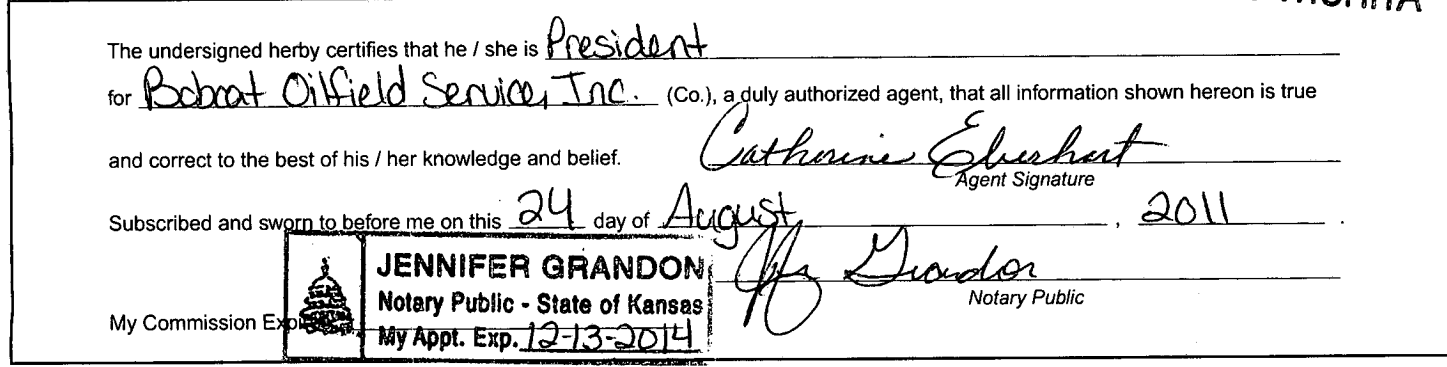 The undersigned herby certifies that he / she is President
for Bobcat Oilfield Service, Inc. (Co.), a duly authorized agent, that all information shown hereon is true
and correct to the best of his / her knowledge and belief. Catherine Eberhart
Agent Signature
Subscribed and sworn to before me on this 24 day of August, 2011.
JENNIFER GRANDON Grandon
Notary Public - State of Kansas Notary Public
My Commission
My Appt. Exp. 12-13-2014